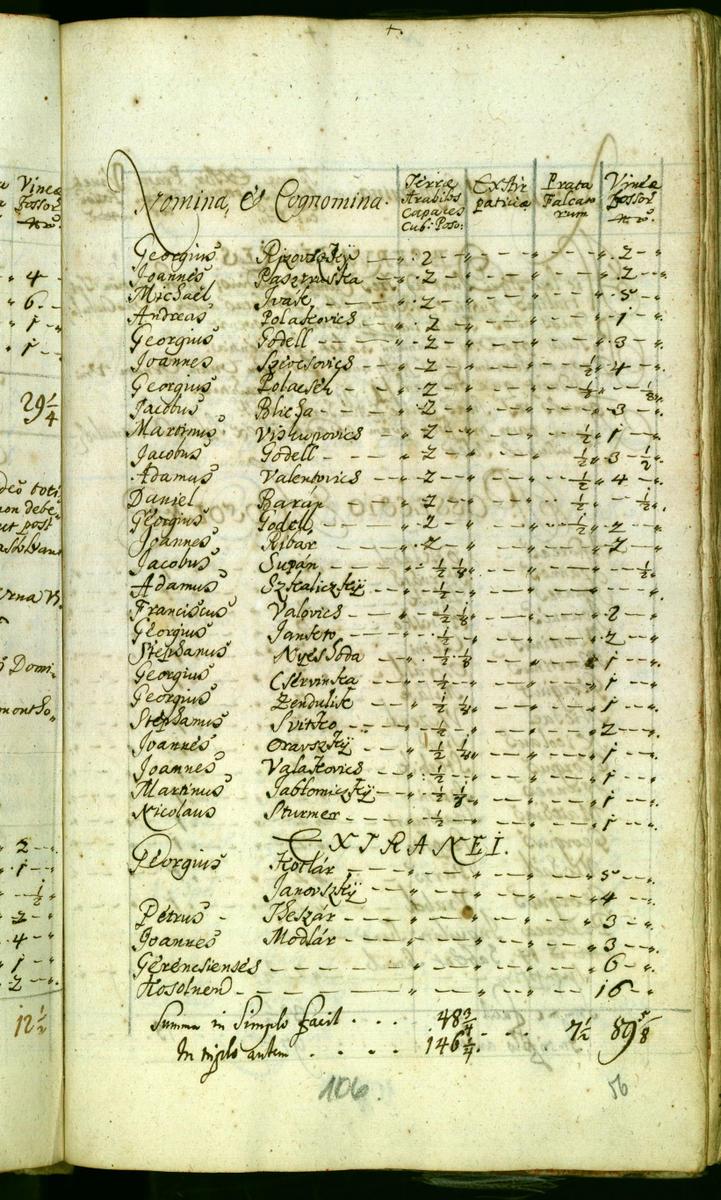 a Vineæ
Fossor
4
6
1
1
29 1/4
deo toti
non debe
ut post
Domi-
montho-
2
1
1/2
2
4
1
2
12 1/2
Nomina, & Cognomina. Terræ Arabiles Capaces Cub: Poso: Extirpaticiæ Prata Falcatorum Vineæ Fossor
Georgius Rizovszky 2 2
Joannes 2 2
Michael Ivak 2 5
Andreas Polakovics 2 1
Georgius Godell 2 3
Joannes Szivcsovics 2 1/2 4
Georgius Polacsek 2 1/2 1/8
Jacobus Blicha 2 3
Martinus Viskupovics 2 1/2 1
Jacobus Godell 2 1/2 3 1/2
Adamus Valentovics 2 1/2 4
Daniel Barán 2 1/2
Georgius Godell 2 1/2 2
Joannes Ribar 2 2
Jacobus Supan 1/2 1/8 1/2
Adamus Szkaliczky 1/2
Franciscus Valovics 1/2 1/8 2
Georgius Janseto 1/2 2
Stephanus Nyeshoda 1/2 1/8 1
Georgius Cservinka 1/2 1
Georgius Zendulik 1/2 1/8 1
Stephanus Svitko 1/2 2
Joannes Oravszky 1/2 1/8 1
Joannes Valakovics 1/2 1
Martinus Jablomiczky 1/2 1/8 1
Nicolaus Sturmer 1/2 1
EXTRANEI.
Georgius Kotlár 5
Janovszky 4
Petrus Theszár 3
Joannes Modlár 3
Gerencsienses 6
16
Summa in Simplo facit . . . 48 3/4 7 1/2 89 5/8
In triplo autem . . . . 146 1/4
106.
56